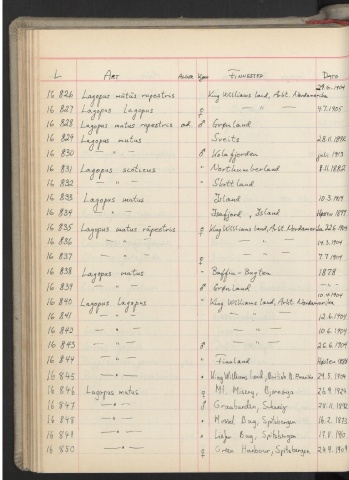 L ART ALDER Kjønn FINNESTED DATO
16 826 Lagopus mutus rupestris King Williams land, Arkt. Nordamerika 29.6.1904
16 827 Lagopus lagopus ♀ — " — 4.7.1905
16 828 Lagopus mutus rupestris ad. ♂ Grønland
16 829 Lagopus mutus Sveits 28.11.1892
16 830 — " — ♂ Kolafjorden juli 1913
16 831 Lagopus scoticus " Northumberland 8.11.1882
16 832 — " — " Skottland
16 833 Lagopus mutus Island 10.3.
16 834 — " — Isafjord, Island
16 835 Lagopus mutus rupestris ♀ King Williams land, Arkt. Nordamerika 22.6.1904
16 836 — " — — " — 14.3.1904
16 837 — " — ♀ — " — 7.7.1904
16 838 Lagopus mutus - Baffin-Bugten 1878
16 839 — " — ♂ Grønland — " —
16 840 Lagopus lagopus - King Williams land, Arkt. Nordamerika 10.4.1904
16 841 — " — — " — 12.6.1904
16 842 — " — — " — 10.6.1904
16 843 — " — ♂ — " — 26.6.1904
16 844 — " — " Finnland
16 845 — " — " King Williams land, British N. Amerika 24.5.1904
16 846 Lagopus mutus ♀ Mt. Misery, Bjørnøya 26.9.1924
16 847 — " — ♂ Graubünden, Schweiz 28.11.1892
16 848 — " — " Mossel Bay, Spitsbergen 16.2.1873
16 849 — " — " Liefde Bay, Spitsbergen 17.8.
16 850 — " — ♀ Green Harbour, Spitsbergen 24.9.1909